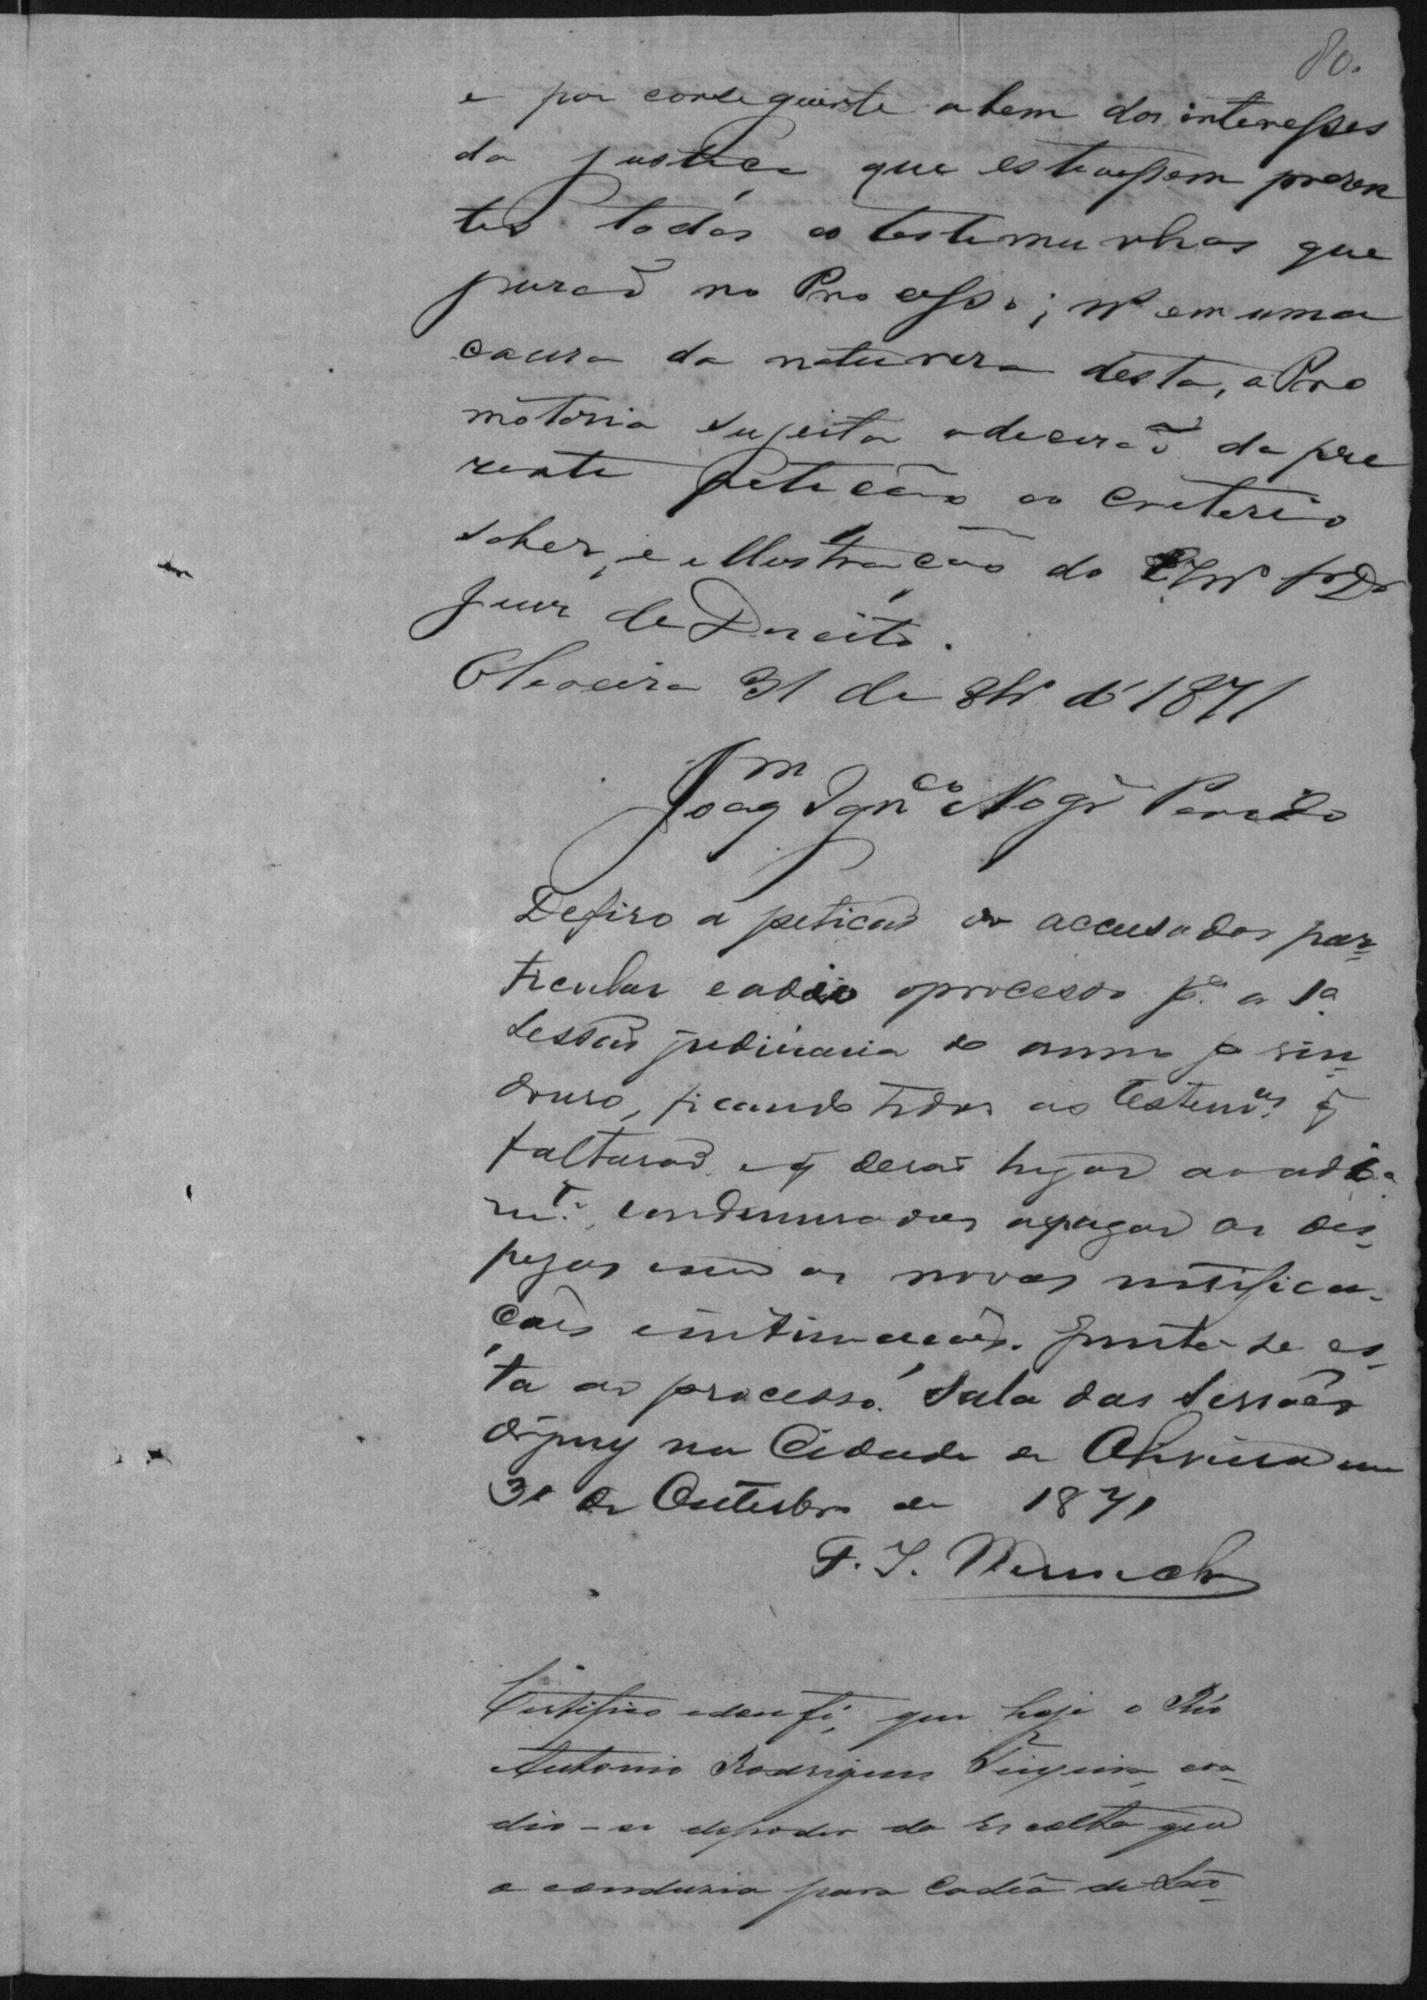 80.
e por conseguinte a bem dos interesses
da justiça que estivessem presen
tes todas as testemunhas que
jurarão no Processo; em uma
causa da naturesa desta, a Pro
motoria sujeita a decisão da pre
sente petição ao criterio
saber, e illustração do Dr
Juiz de Direito.
Oliveira 31 de 8br.º d' 1871
Joaqm Ignco Nogr Penido
Defiro á petição do accusador par-
ticular e adio o processo pa. a 1a.
sessão judiciaria do anno p vin-
douro, ficando todas as testemas. q̃
faltarão, e q̃ derão lugar ao adia
mto. condemnadas a pagar as des-
pezas com as novas notifica-
ções e intimações. Junte-se es-
ta ao processo. Sala das Sessões
do jury na Cidade de Oliveira em
31 de Outubro de 1871
F. I. Werneck
Certifico e dou fé, que hoje o Réo
Antonio Rodrigues eva-
dio-se do poder da Escolta que
o conduzia para Cadêa de São